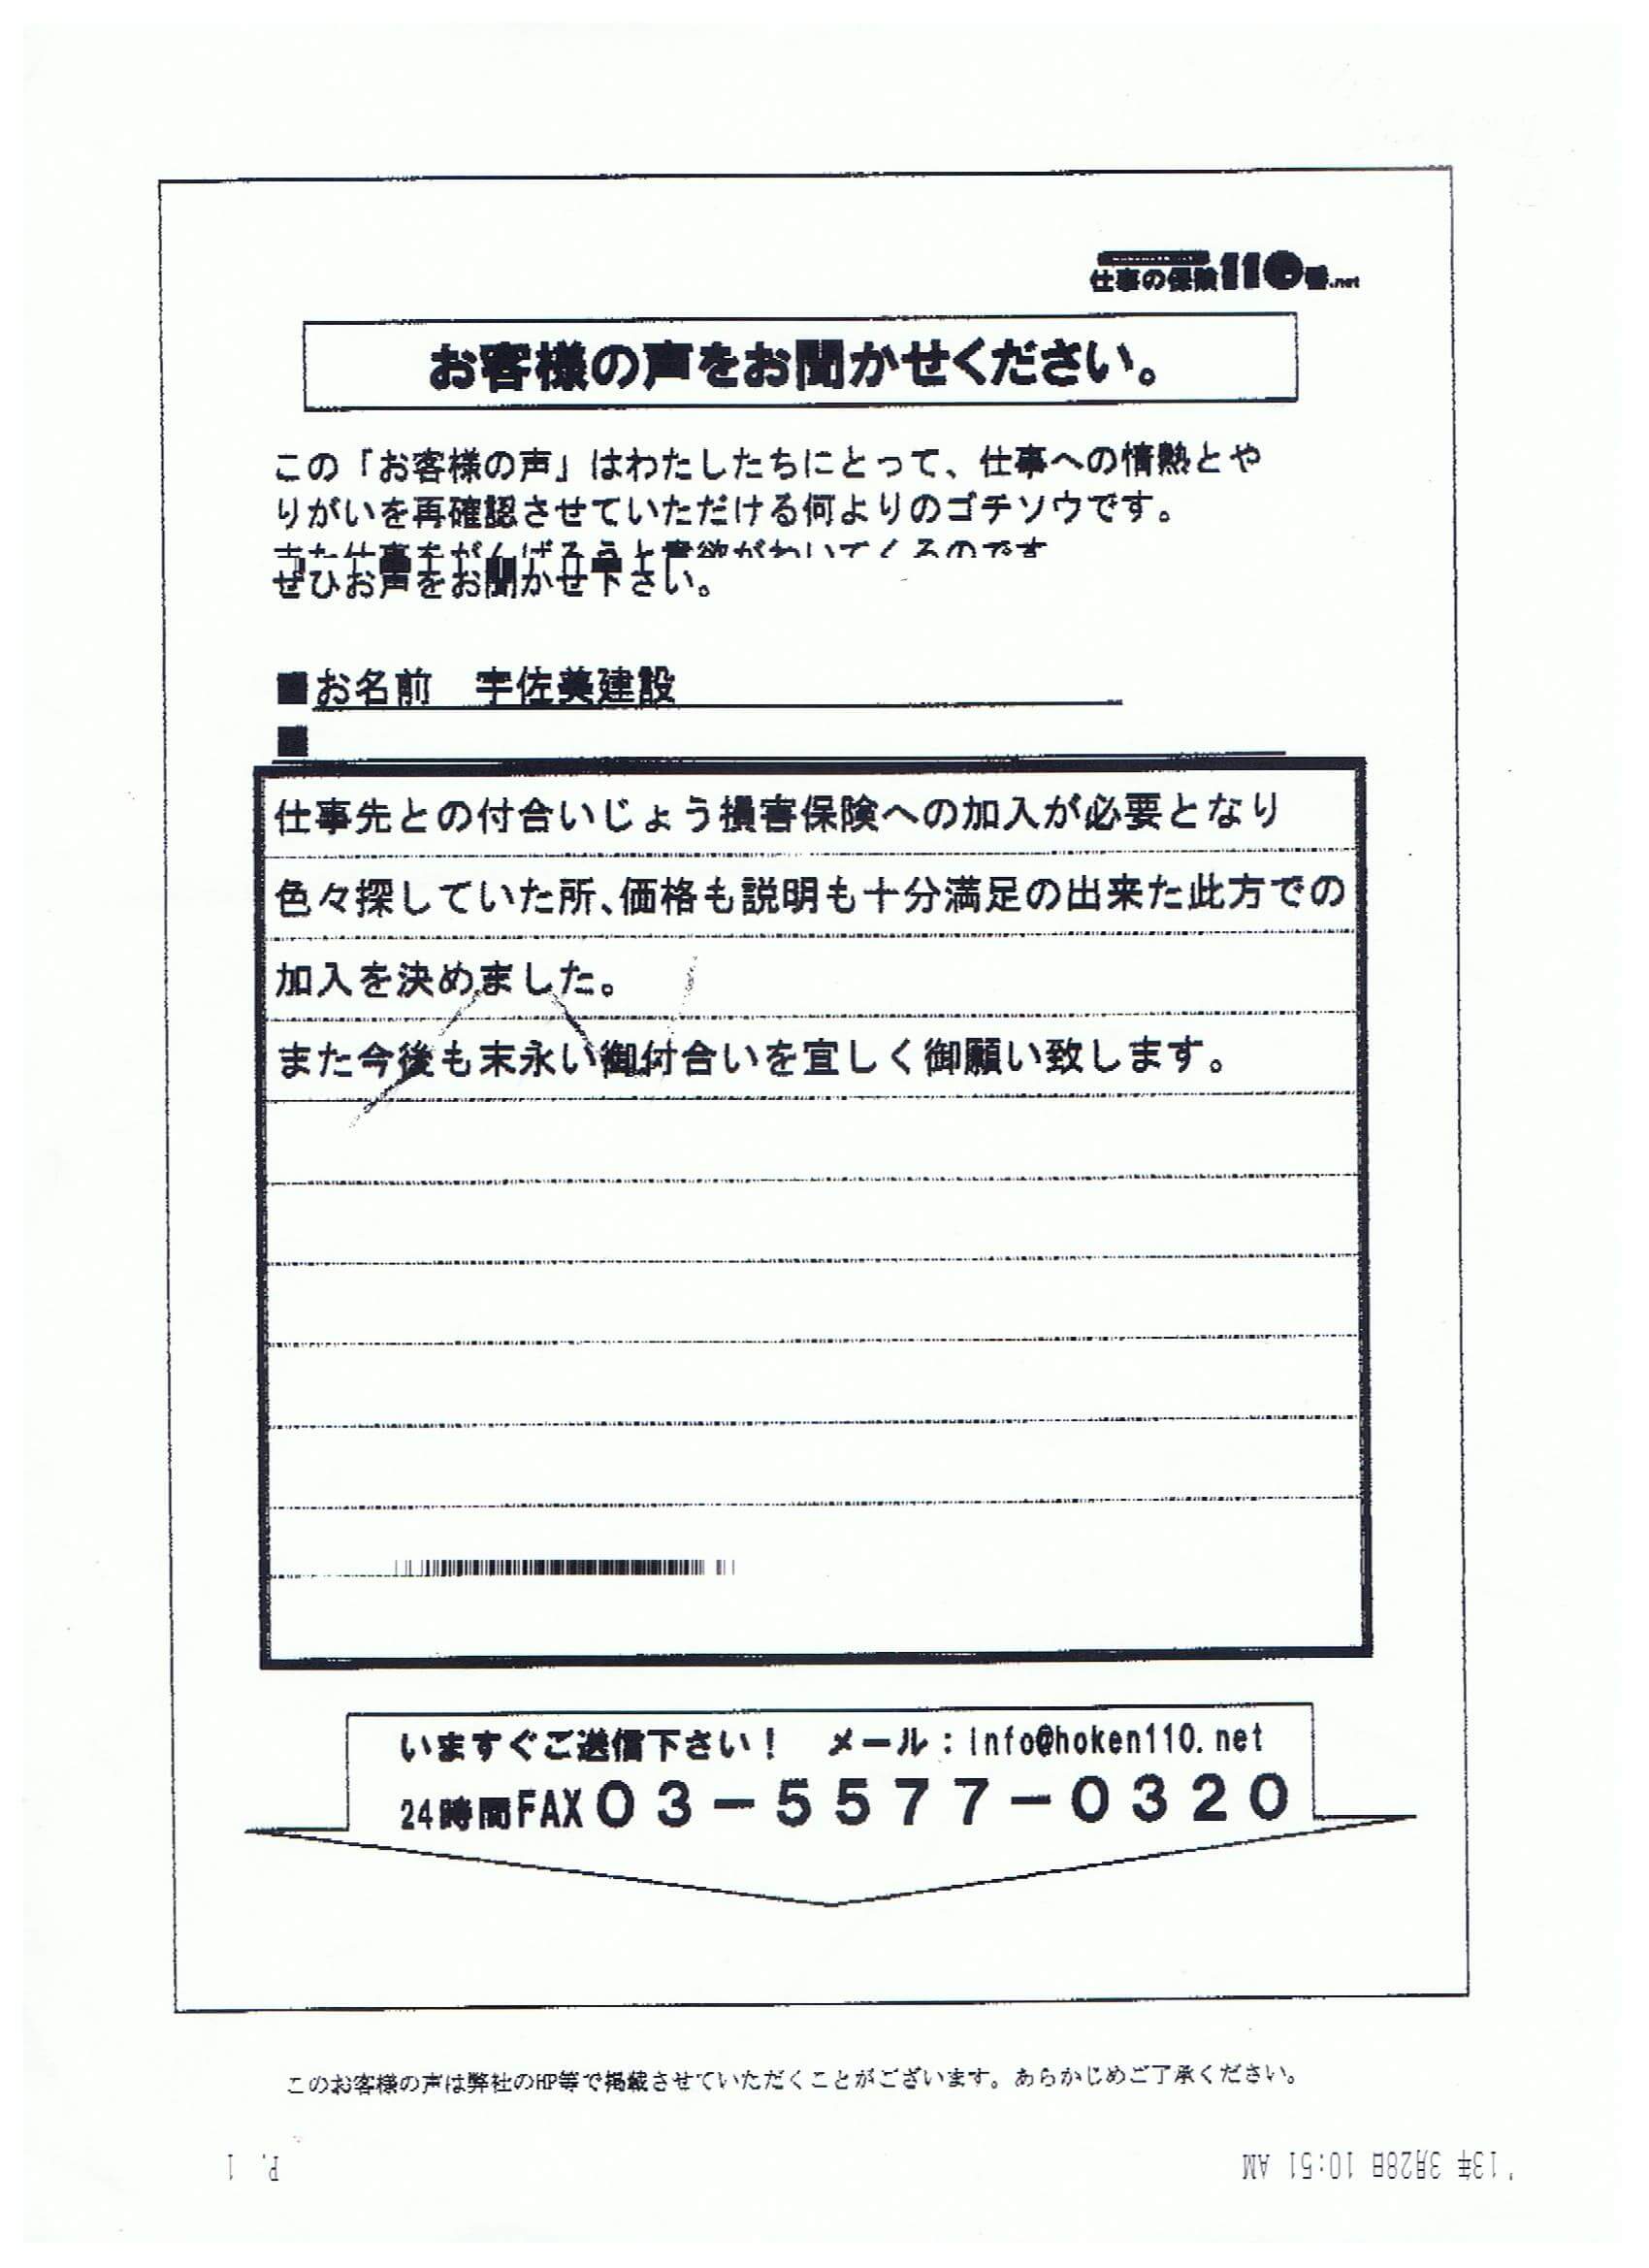 仕事の保険110番.net
お客様の声をお聞かせください。
この「お客様の声」はわたしたちにとって、仕事への情熱とや
りがいを再確認させていただける何よりのゴチソウです。
また仕事をがんばろうと意欲がわいてくるのです
ぜひお声をお聞かせ下さい。
■お名前 宇佐美建設
■
仕事先との付合いじょう損害保険への加入が必要となり
色々探していた所、価格も説明も十分満足の出来た此方での
加入を決めました。
また今後も末永い御付合いを宜しく御願い致します。
いますぐご送信下さい! メール:info@hoken110.net
24時間FAX03-5577-0320
このお客様の声は弊社のHP等で掲載させていただくことがございます。あらかじめご了承ください。
'13年 3月28日 10:51 AM
P. 1